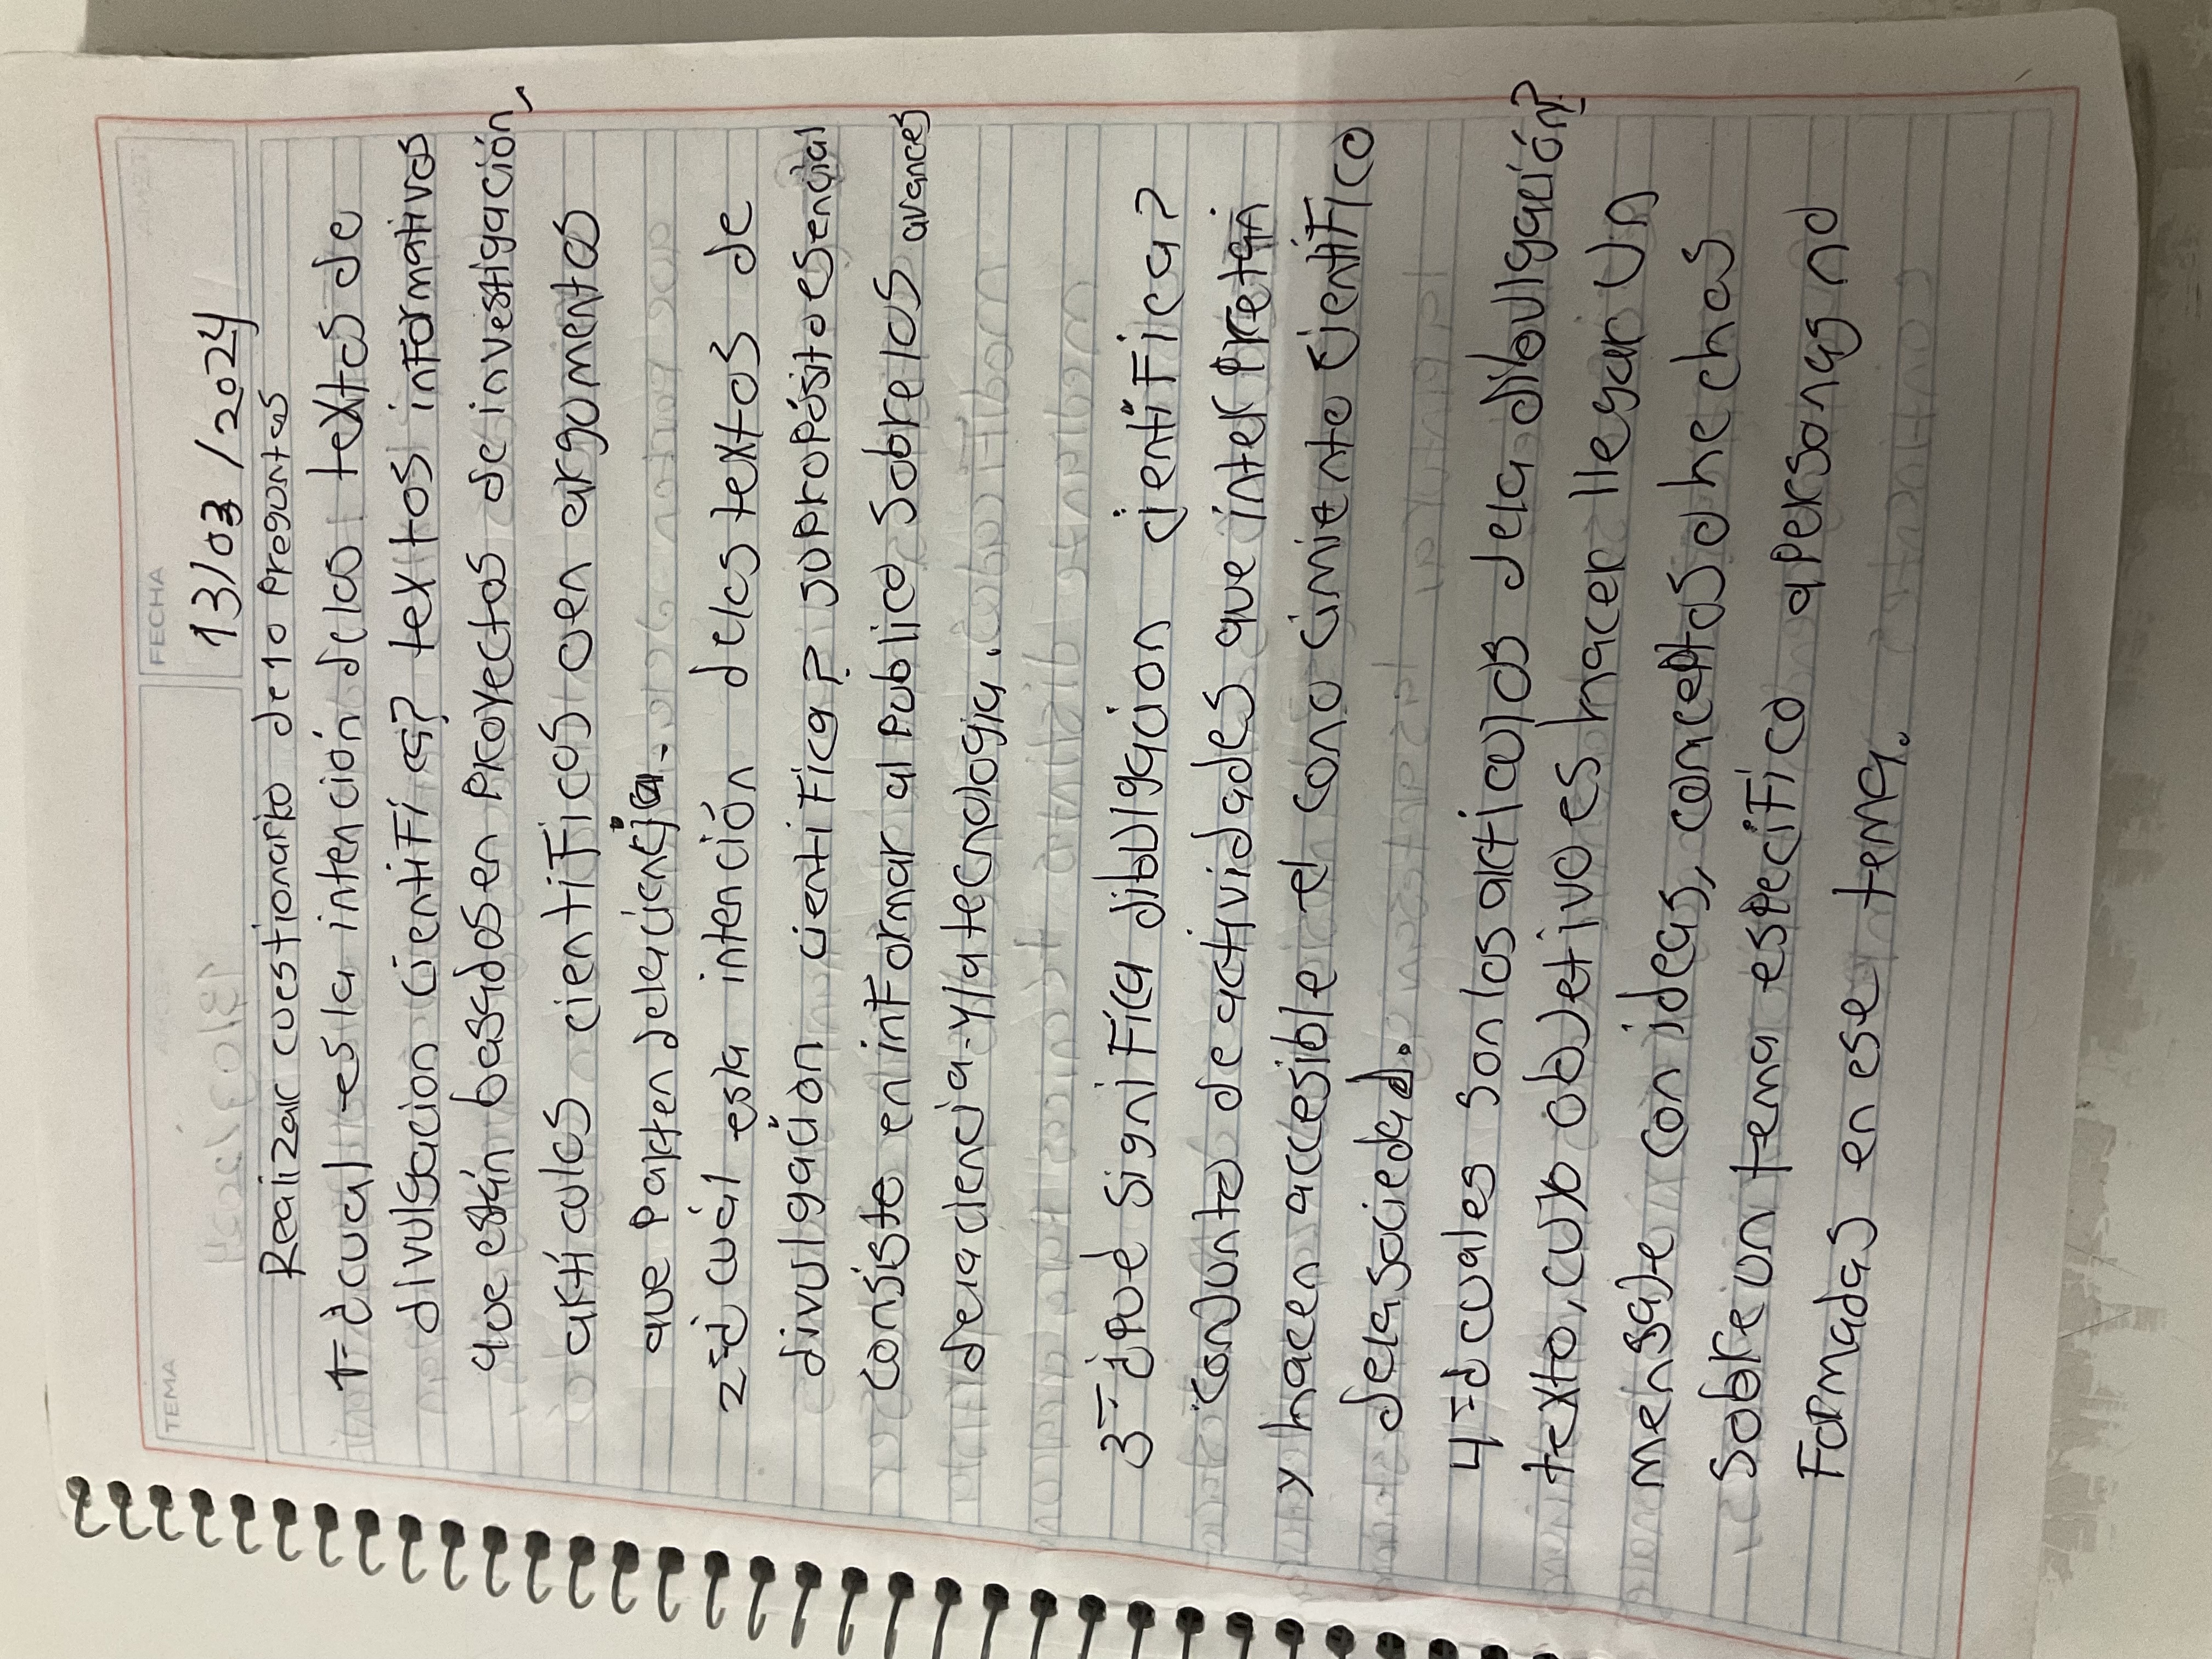 TEMA
FECHA
13/03/2024
Realizar cuestionario de 10 Preguntas
1- ¿cual es la intención de los textos de
divulgacion cientifica? textos informativos
que están basados en Proyectos de investigación,
artículos cientificos o en argumentos
que Parten de la ciencia.
2- ¿cuál es la intención de los textos de
divulgación cientifica? su propósito esencial
consiste en informar al Publico sobre los avances
de la ciencia y la tecnologia.
3- ¿Qué significa dibulgacion cientifica?
conjunto de actividades que inter Pretan
y hacen accesible el conocimiento cientifico
de la sociedad.
4- ¿cuales son los articulos de la dibulgación?
texto, cuyo objetivo es hacer llegar un
mensaje con ideas, conceptos o hechos
sobre un tema especifico a personas no
Formadas en ese tema.